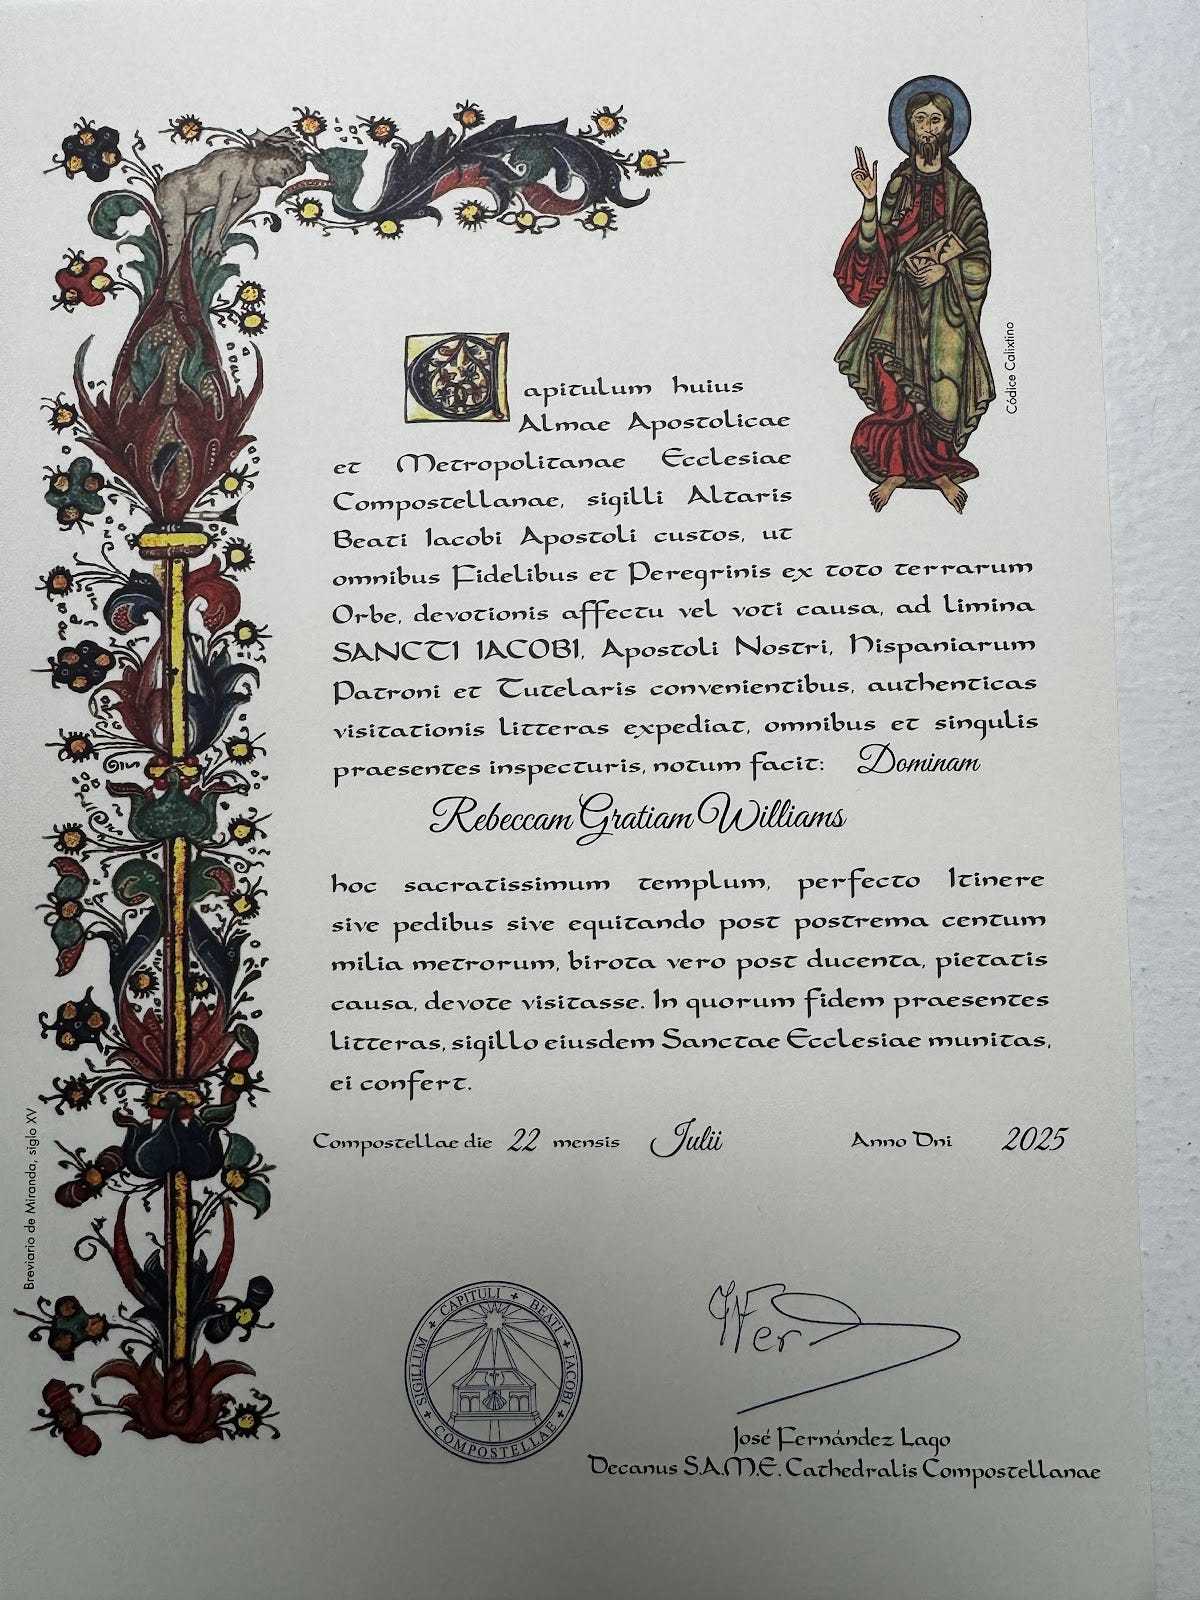 Capitulum huius
Almae Apostolicae
et Metropolitanae Ecclesiae
Compostellanae, sigilli Altaris
Beati Iacobi Apostoli custos, ut
omnibus Fidelibus et Peregrinis ex toto terrarum
Orbe, devotionis affectu vel voti causa, ad limina
SANCTI IACOBI, Apostoli Nostri, Hispaniarum
Patroni et Tutelaris convenientibus, authenticas
visitationis litteras expediat, omnibus et singulis
praesentes inspecturis, notum facit: Dominam
Rebeccam Gratiam Williams
hoc sacratissimum templum, perfecto Itinere
sive pedibus sive equitando post postrema centum
milia metrorum, birota vero post ducenta, pietatis
causa, devote visitasse. In quorum fidem praesentes
litteras, sigillo eiusdem Sanctae Ecclesiae munitas,
ei confert.
Compostellae die 22 mensis Julii Anno Dni 2025
SIGILLUM + CAPITULI + BEATI + IACOBI + COMPOSTELLAE +
José Fernández Lago
Decanus S.A.M.E. Cathedralis Compostellanae
Códice Calixtino
Breviario de Miranda, siglo XV